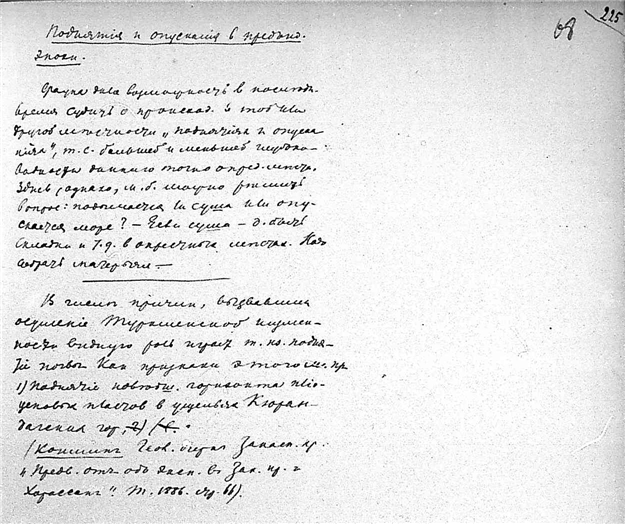 225
68
Поднятія и опусканія в предыд.
эпохи.
Фауна дала возможность в последн.
время судить о происход. в той или
другой местности „поднятія и опуска
нія", т.е. большей и меньшей глубоко-
водности данного точно опред. места.
Здесь, однако, м.б. можно решить
вопрос: подымается ли суша или опу-
скается море? — Если суша — д. быть
складки и т.д. в окрестных местах. Надо
собрать матерьял —
В числе причин, вызвавших
осушеніе Туркменской низмен-
ности видную роль играет т. наз. подня-
тіе почвы. Как признаки этого м. пр.
1) Поднятіе новейш. горизонта пліо-
ценовых пластов в ущельях Кюран-
дагских гор, 2)
(Коншин Геол. очерк Закасп. кр.
„Предв. отч. об эксп. в Зак. кр. и
Хорассан". Т. 1886. стр. 66).